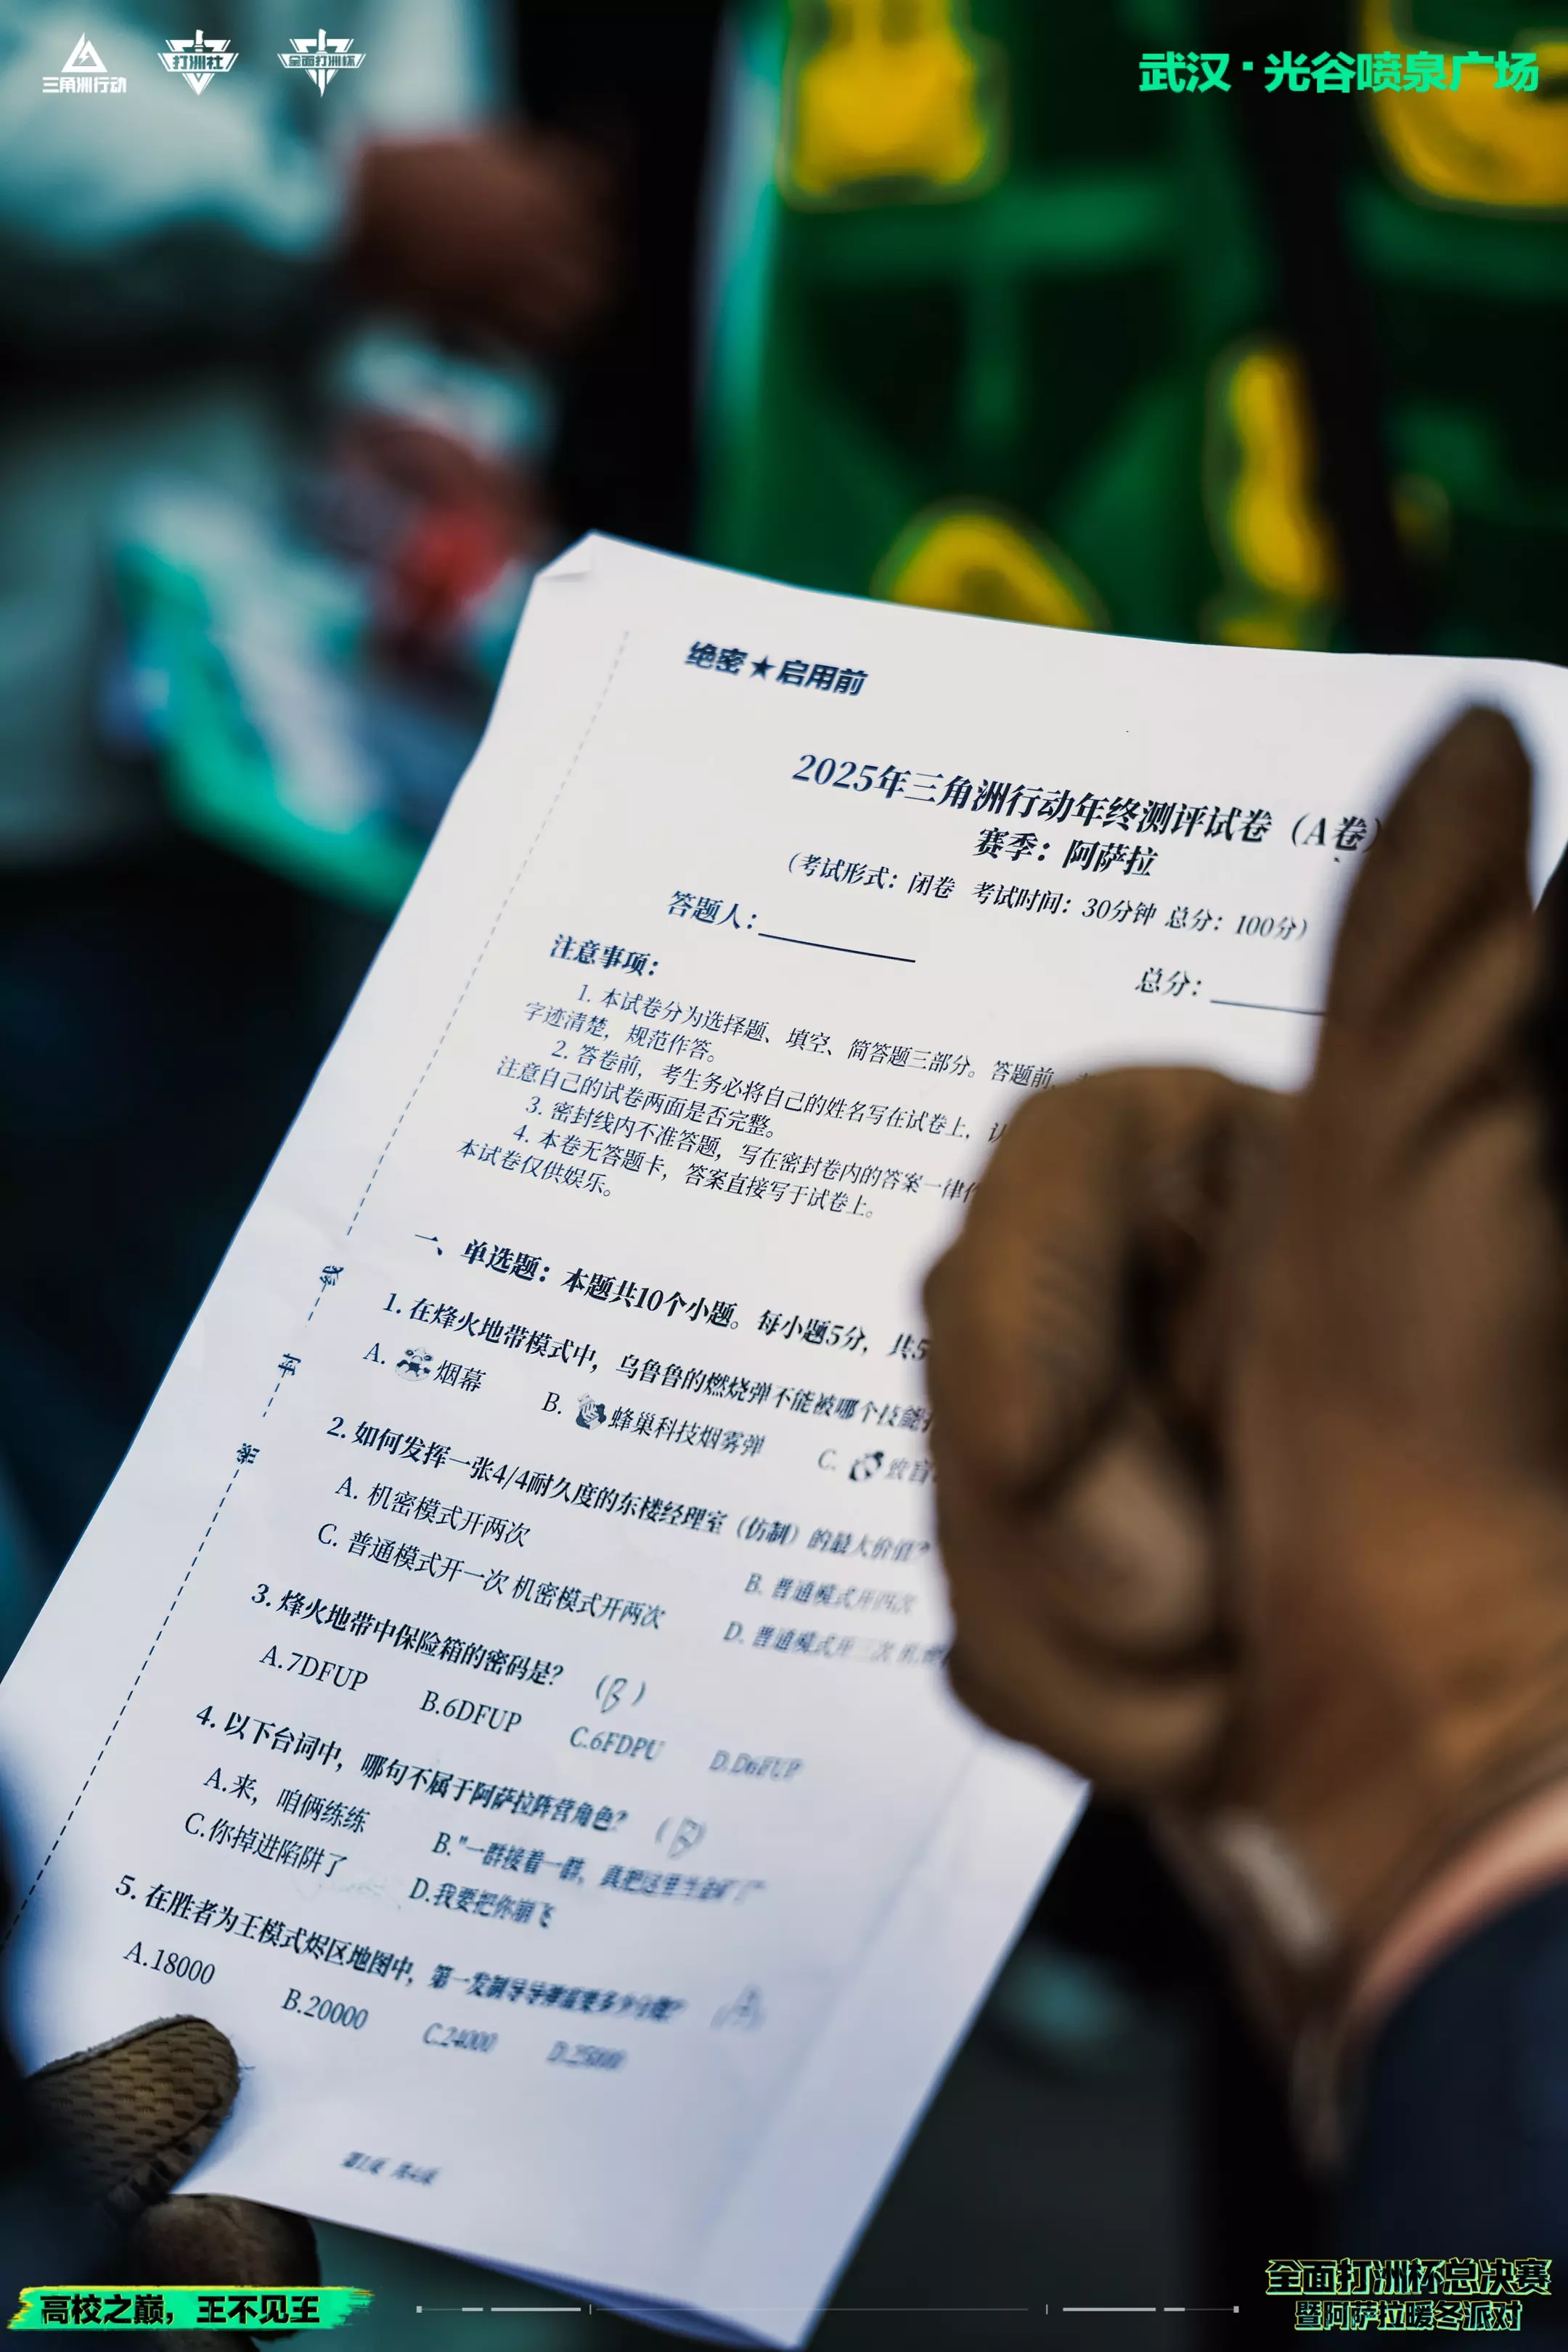 三角洲行动
打洲社
全面打洲杯
武汉·光谷喷泉广场
绝密★启用前
2025年三角洲行动年终测评试卷（A卷）
赛季：阿萨拉
（考试形式：闭卷 考试时间：30分钟 总分：100分）
答题人：
总分：
注意事项：
1. 本试卷分为选择题、填空、简答题三部分。答题前，
字迹清楚，规范作答。
2. 答卷前，考生务必将自己的姓名写在试卷上，认
注意自己的试卷两面是否完整。
3. 密封线内不准答题，写在密封卷内的答案一律作
4. 本卷无答题卡，答案直接写于试卷上。
本试卷仅供娱乐。
一、单选题：本题共10个小题。每小题5分，共5
1. 在烽火地带模式中，乌鲁鲁的燃烧弹不能被哪个技能
A. 烟幕 B. 蜂巢科技烟雾弹 C. 致盲
2. 如何发挥一张4/4耐久度的东楼经理室（仿制）的最大价值？
A. 机密模式开两次 B. 普通模式开四次
C. 普通模式开一次 机密模式开两次 D. 普通模式开三次
3. 烽火地带中保险箱的密码是？ （B）
A.7DFUP B.6DFUP C.6FDPU D.D6FUP
4. 以下台词中，哪句不属于阿萨拉阵营角色？ （B）
A.来，咱俩练练 B."一群接着一群，真把这里当金矿了"
C.你掉进陷阱了 D.我要把你崩飞
5. 在胜者为王模式烬区地图中，第一发制导导弹需要多少分数？ （A）
A.18000 B.20000 C.24000 D.25000
线
封
密
高校之巅，王不见王
全面打洲杯总决赛
暨阿萨拉暖冬派对